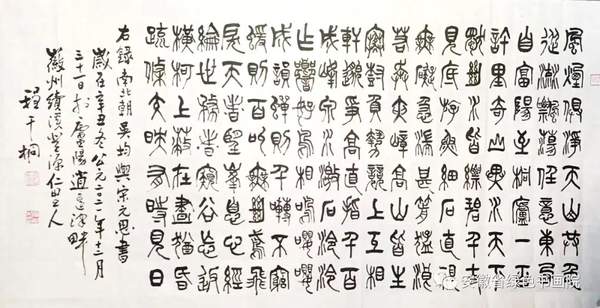 風煙俱淨天山共色
從流飄蕩任意東西
自富陽至桐廬一百
許里奇山異水天下
獨絕水皆縹碧千丈
見底游魚細石直視
無礙急湍甚箭猛浪
若奔夾岸高山皆生
寒樹負勢競上互相
軒邈爭高直指千百
成峰泉水激石泠泠
作響好鳥相鳴嚶嚶
成韻蟬則千轉不窮
猨則百叫無絕鳶飛
戾天者望峰息心經
綸世務者窺谷忘反
橫柯上蔽在晝猶昏
疏條交映有時見日
右錄南北朝吳均與宋元思書
歲在辛丑冬公元二〇二一年十二月
三十一日於廬陽逍遙津畔
徽州績溪豐源仁里人
程千桐
安徽省绿色书画院